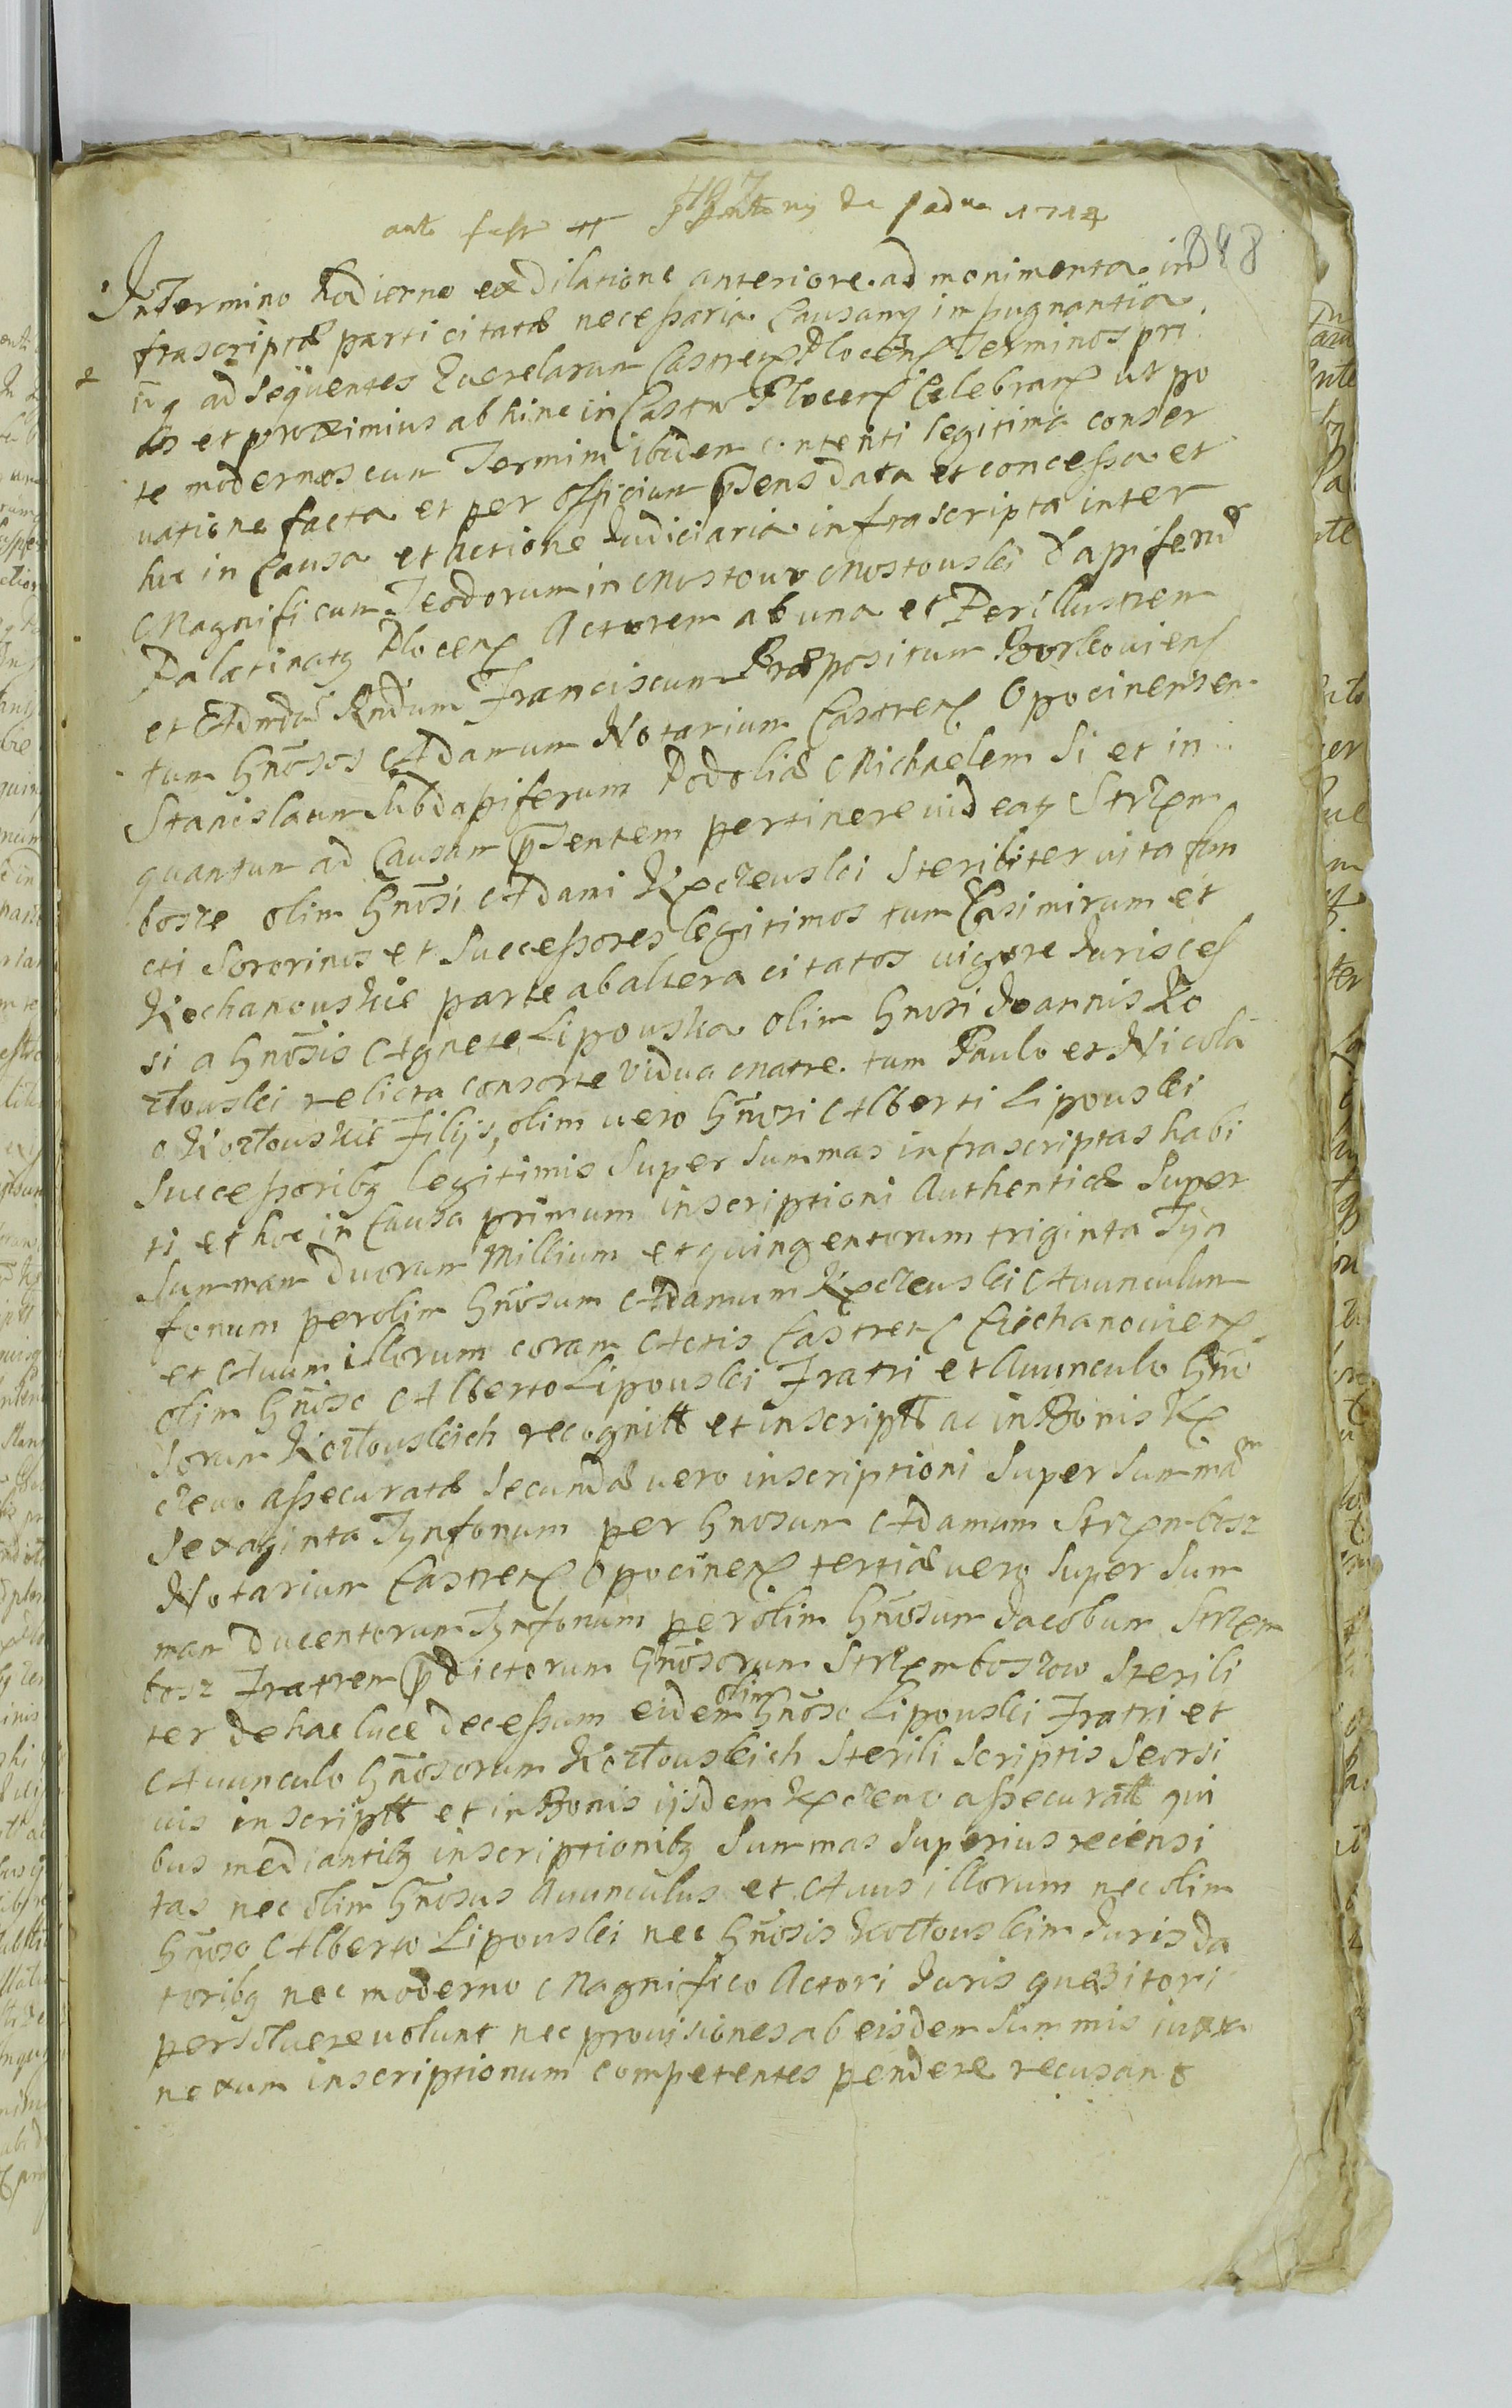 ante fest Antonij de Padua 1714
398
In Termino hodierno ex dilatione anteriore ad monimenta in
frascriptæ parti citatæ necessaria Causamq impugnantia
ad sequentes Querelarum Castren Plocen Terminos pri
os et proximius abhinc in Castro Plocen Celebran ut po
te modernos cum Termini ibidem contenti legitima conser
uatione facta et per Officium p̄sens data et concessa et
huc in Causa et Actione Judiciaria infrascripta inter
Magnificum Teodorum in Mostowo Mostouski Dapiferu
Palatinatq Plocen Actorem ab una et Perillustrem
et Admdu Rndum Franciscum Præpositum Borkouiens
tum Gnosos Adamum Notarium Castren Opocinensem
Stanislaum Subdapiferum Podoliæ Michaelem Si et in
quantum ad Causam p̄sentem pertinere uideatq Strzem
bosze olim Gnosi Adami Kęczeuski steriliter uita fun
cti Sororinos et Successores legitimos tum Casimirum et
Kochanouskie parte ab altera citatos uigore Juris ces
si a Gnosis Agnete Lipouska olim Gnosi Joannis Ko
złouski relicta consorte Vidua matre tum Paulo et Nicola
o Kozłouskie Filijs, olim uero Gnosi Alberti Lipouski
Successoribq legitimis super summas infrascriptas habi
ti et hoc in Causa primum inscriptioni Authenticæ super
summam duorum Millium et quingentorum triginta Tyn
fonum per olim Gnosum Adamum Kęczeuski Auunculum
et Auum illorum coram Actis Castren Ciechanouien
olim Gnoso Alberto Lipouski Fratri et Auunculo Gno
sorum Kozłouskich recognitt et inscriptt ac in Bonis Kę
czewo assecuratæ secundæ uero inscriptioni super summam
sexaginta Tynfonum per Gnosum Adamum Strzembosz
Notarium Castren Opocinen tertiæ uero super sum
mam ducentorum Tynfonum per olim Gnosum Jacobum Strzem
bosz Fratrem p̄dictorum Gnosorum Strzemboszow sterili
ter de hac luce decessum eidem olim Gnoso Lipouski Fratri et
Auunculo Gnosorum Kozłouskich sterili scriptis seorsi
uis inscriptt et in Bonis ijsdem Kęczewo assecuratt qui
bus mediantibq inscriptionibq summas superius recensi
tas nec olim Gnosus Auunculus et Auus illorum nec olim
Gnoso Alberto Lipouski nec Gnosis Kozłouskim Juris da
toribq nec moderno Magnifico Actori Juris quæsitori
persoluere uolunt nec prouisiones ab eisdem summis iuxta
nexum inscriptionum competentes pendere recusant